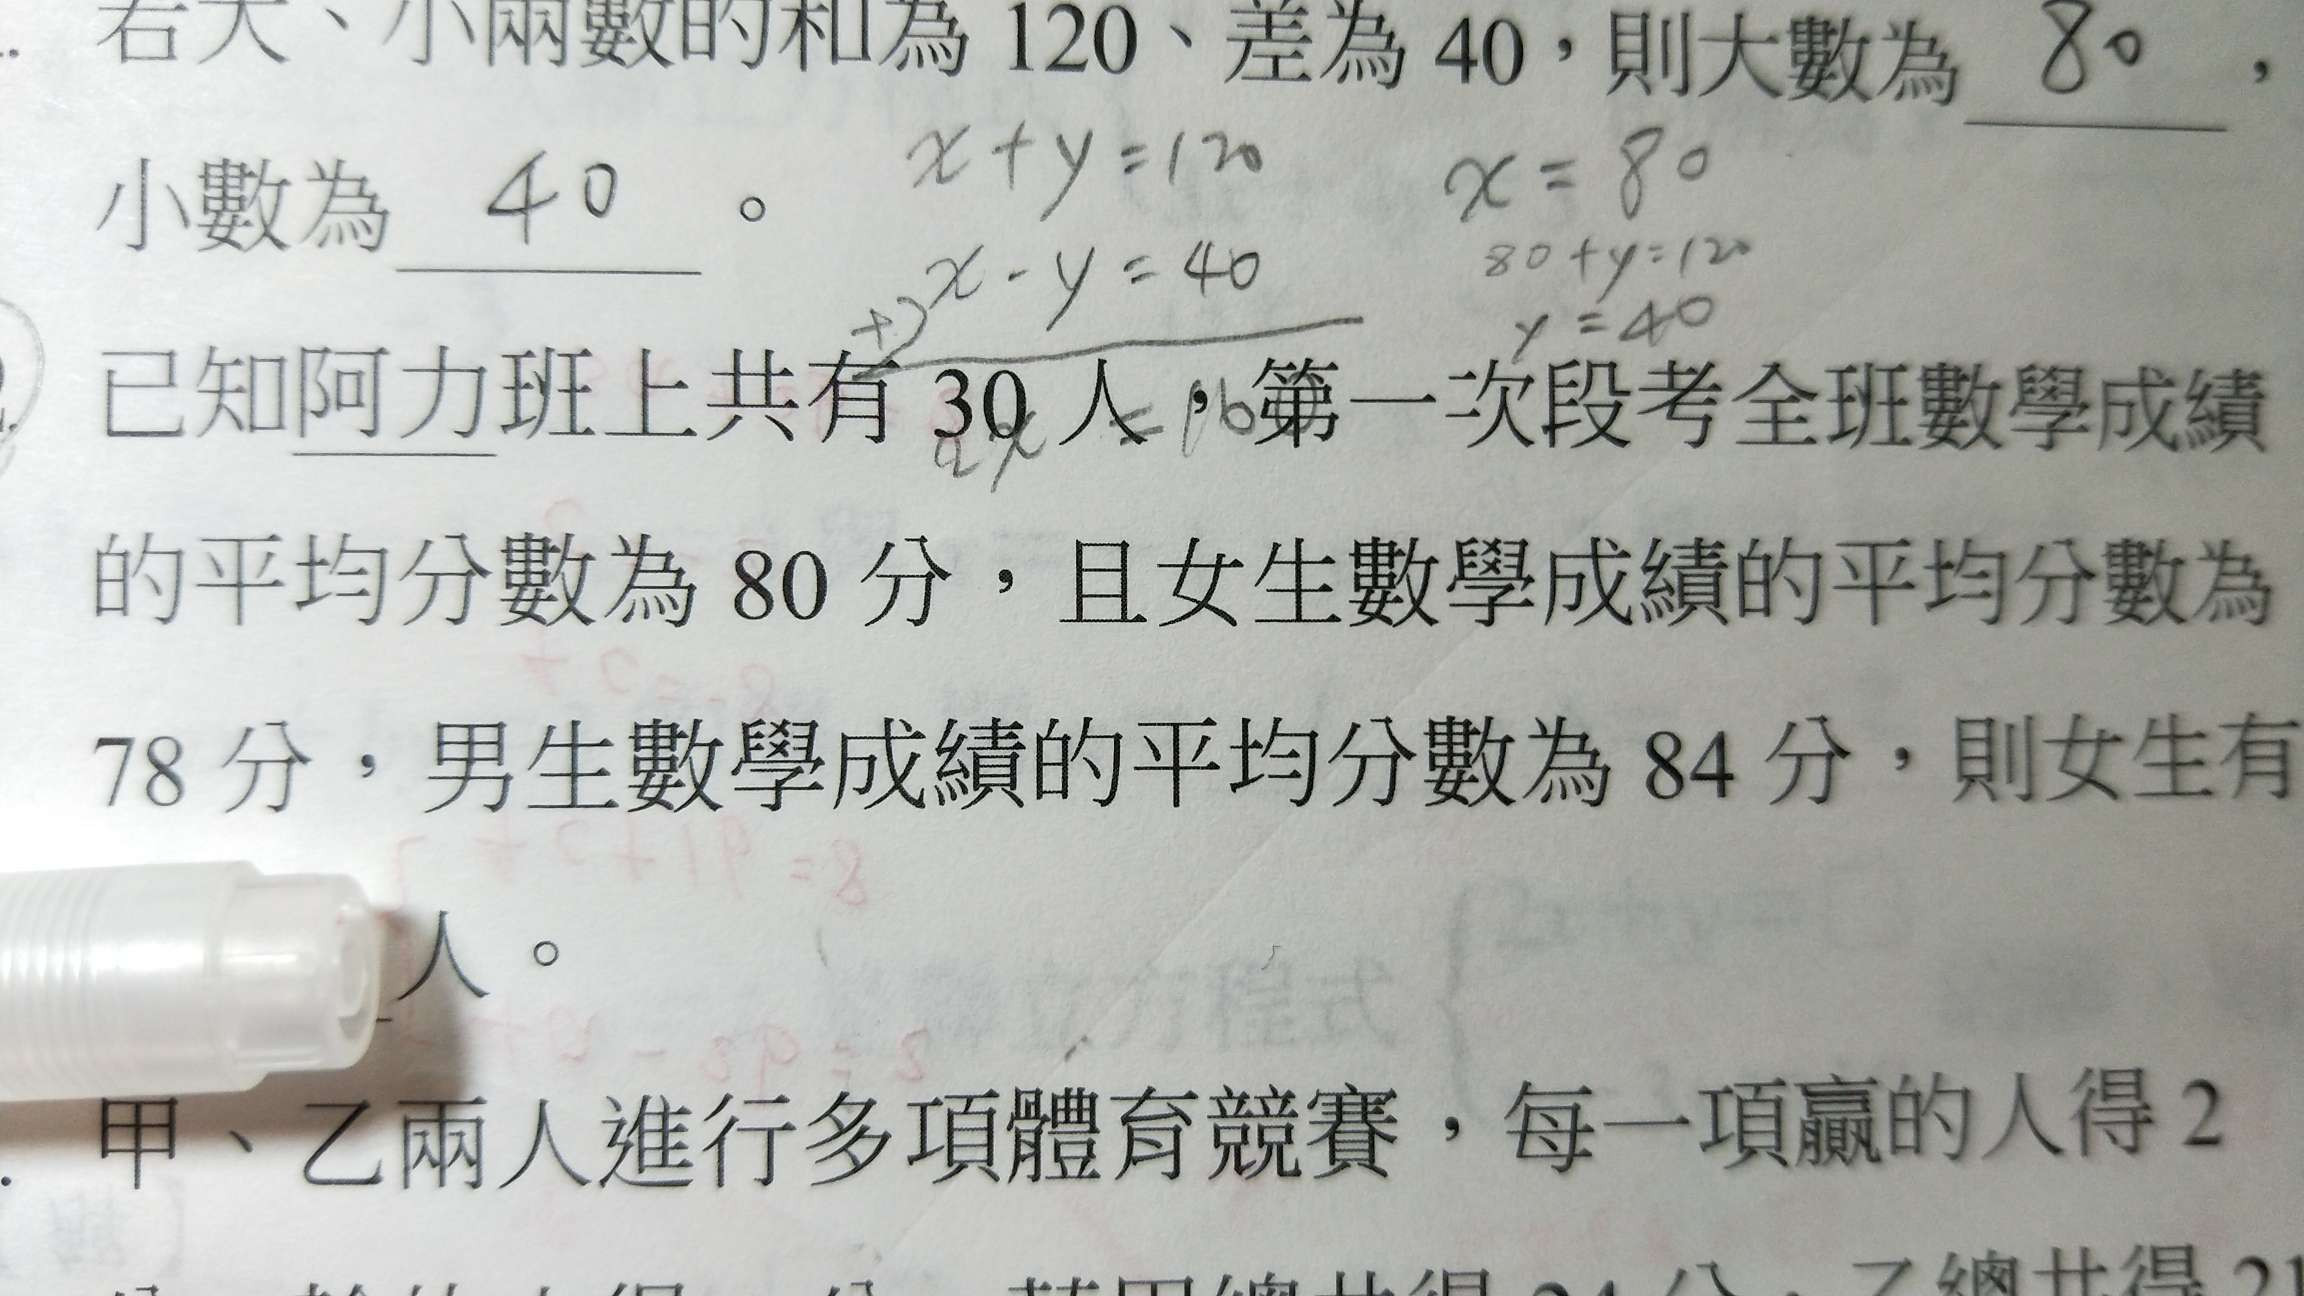 若大、小兩數的和為 120、差為 40，則大數為 80，
小數為 40 。
x+y=120
x-y=40
+)
2x =160
x=80
80+y=120
y=40
已知阿力班上共有 30 人，第一次段考全班數學成績
的平均分數為 80 分，且女生數學成績的平均分數為
78 分，男生數學成績的平均分數為 84 分，則女生有
人。
甲、乙兩人進行多項體育競賽，每一項贏的人得 2